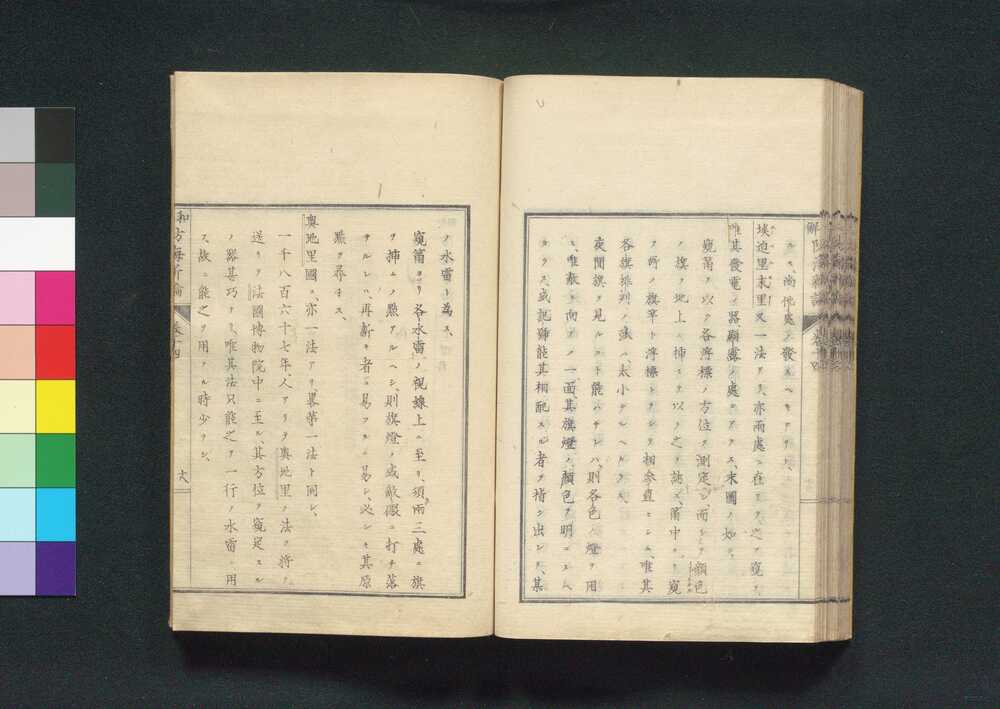 ルニ、尚他處ノ發スヘキアリト、
埃迫里末里又一法アリ、亦兩處ニ在リテ之ヲ窺ヒ、
唯其發電ノ器顯露ノ處ニアラス、末圖ノ如シ、
窺筩ヲ以テ各浮標ノ方位ヲ測定シ、而シテ顔色
ノ旗ヲ地上ニ挿ミテ以テ之ヲ誌ス、筩中ヨリ窺
フ所ノ旗竿ト浮標トヲシテ相參直セシム、唯其
各旗排列ノ太小ナルヘカラス、
夜間旗ヲ見ルコト能ハサレハ、則各色ノ燈ヲ用
ヒ、唯敵ニ向フノ一面、其旗燈ノ顔色ヲ明ニスヘ
カラス、或記號能其相配スル者ヲ指シ出シテ、某
ノ水雷ト為ス、
窺筩ヨリ各水雷ノ視線上ニ至リ、須兩三處ニ旗
ヲ挿ムノ點アルヘシ、則旗燈ノ或敵礮ニ打チ落
サルレハ、再新キ者ニ易フルニ易シ、必シモ其原
點ヲ尋子ス、
奥地里國ニ、亦一法アリ、畧第一法ト同シ、
一千八百六十七年、人アリテ奥地里ノ法ヲ將テ
送リテ法國博物院中ニ至ル、其方位ヲ窺定スル
ノ器甚巧ナリ、唯其法只能之ヲ一行ノ水雷ニ用
ス、故ニ能之ヲ用フル時少ヲシ、
卷十四